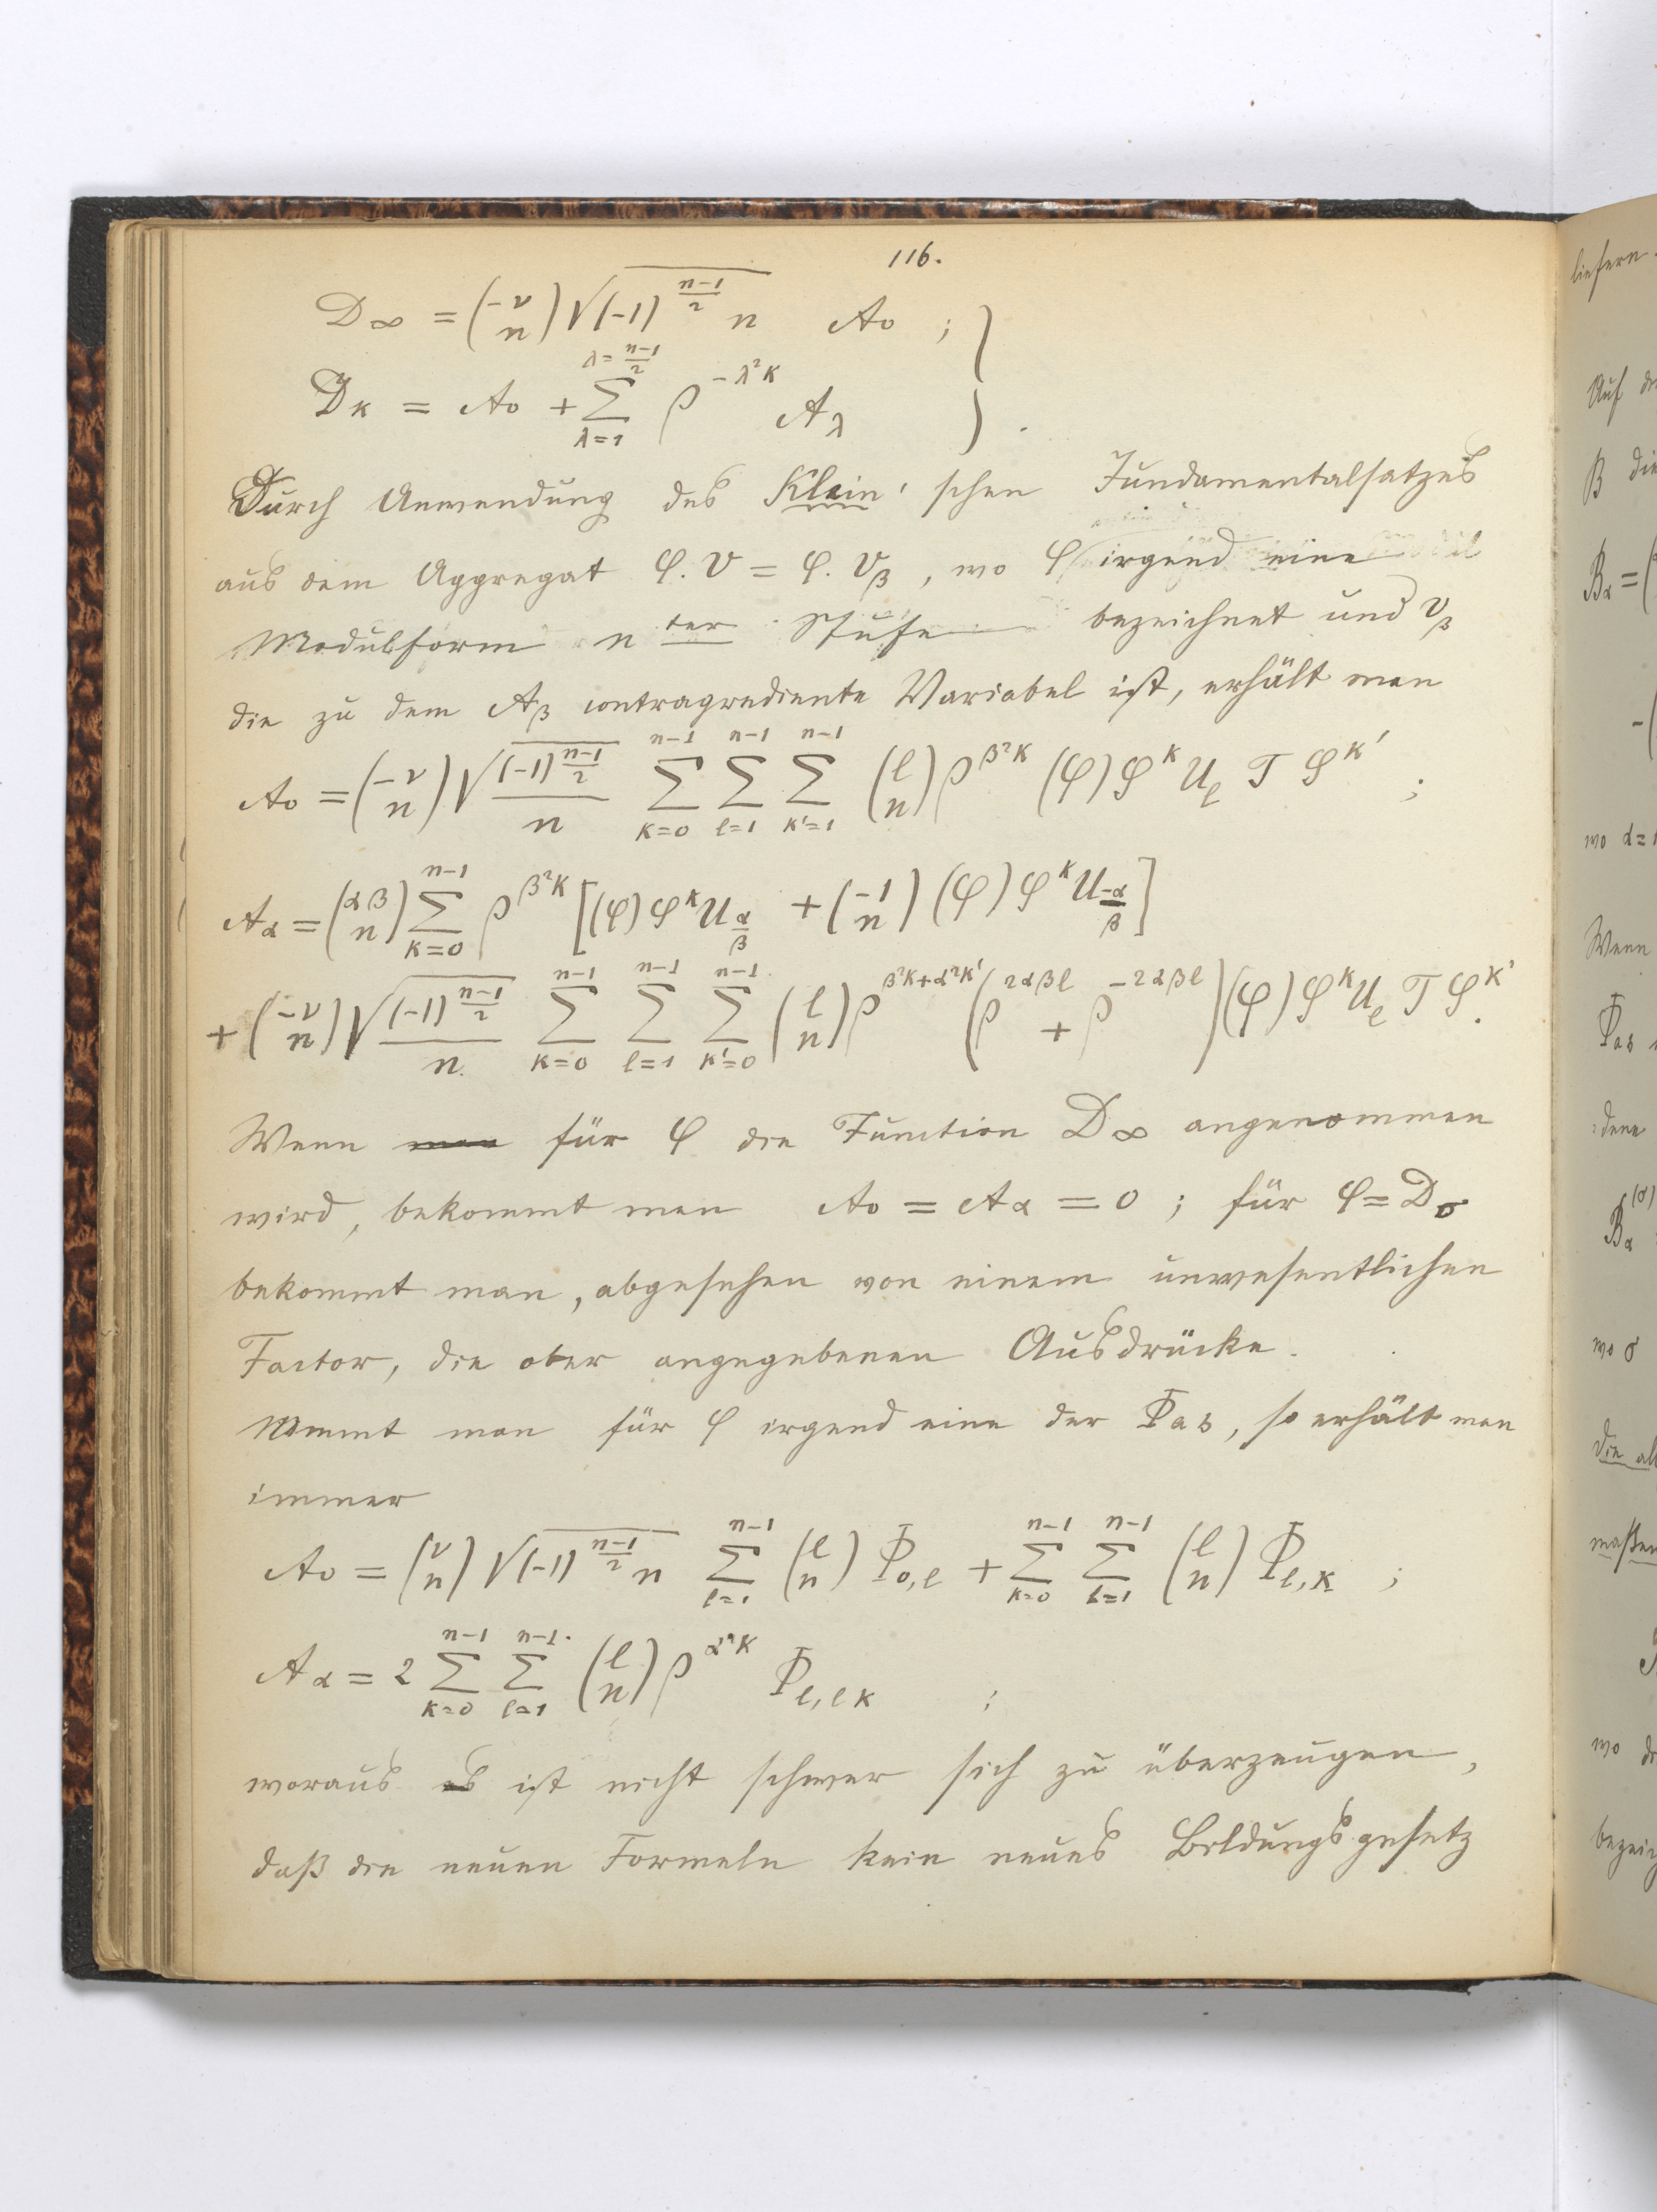 116.
D∞ = (−ν/n) √((−1)^((n−1)/2) n) A₀ ; }
D_κ = A₀ + Σ_{λ=1}^{λ=(n−1)/2} ρ^(−λ²κ) A_λ } .
Durch Anwendung des Klein'schen Fundamentalsatzes
aus dem Aggregat φ. v = φ. v_β , wo φ irgend eine
Modulform n ter Stufe bezeichnet und v_β
die zu dem A_β contragrediente Variabel ist, erhält man
A₀ = (−ν/n) √((−1)^((n−1)/2))/n Σ_{κ=0}^{n−1} Σ_{l=1}^{n−1} Σ_{κ'=1}^{n−1} (l/n) ρ^(β²κ) (φ) S^κ U_l T S^κ' ;
A_α = (αβ/n) Σ_{κ=0}^{n−1} ρ^(β²κ) [(φ) S^κ U_(α/β) + (−1/n) (φ) S^κ U_(−α/β)]
+ (−ν/n) √((−1)^((n−1)/2))/n. Σ_{κ=0}^{n−1} Σ_{l=1}^{n−1} Σ_{κ'=0}^{n−1} (l/n) ρ^(β²κ+α²κ') (ρ^(2αβl) + ρ^(−2αβl)) (φ) S^κ U_l T S^κ'.
Wenn für φ die Function D∞ angenommen
wird, bekommt man A₀ = A_α = 0 ; für φ = D₀
bekommt man, abgesehen von einem unwesentlichen
Factor, die oben angegebenen Ausdrücke.
Nimmt man für φ irgend eine der Φ_αβ, so erhält man
immer
A₀ = (ν/n) √((−1)^((n−1)/2) n) Σ_{l=1}^{n−1} (l/n) Φ_{0,l} + Σ_{κ=0}^{n−1} Σ_{l=1}^{n−1} (l/n) Φ_{l,κ} ;
A_α = 2 Σ_{κ=0}^{n−1} Σ_{l=1}^{n−1} (l/n) ρ^(α²κ) Φ_{l,lκ} ;
woraus es ist nicht schwer sich zu überzeugen,
daß die neuen Formeln kein neues Bildungsgesetz
liefern.
Auf
B die
B_α = (
wo α = 1
Wenn
Φ_αβ
dene
B_α^(σ)
wo σ
die al
maßen
wo
bezeich